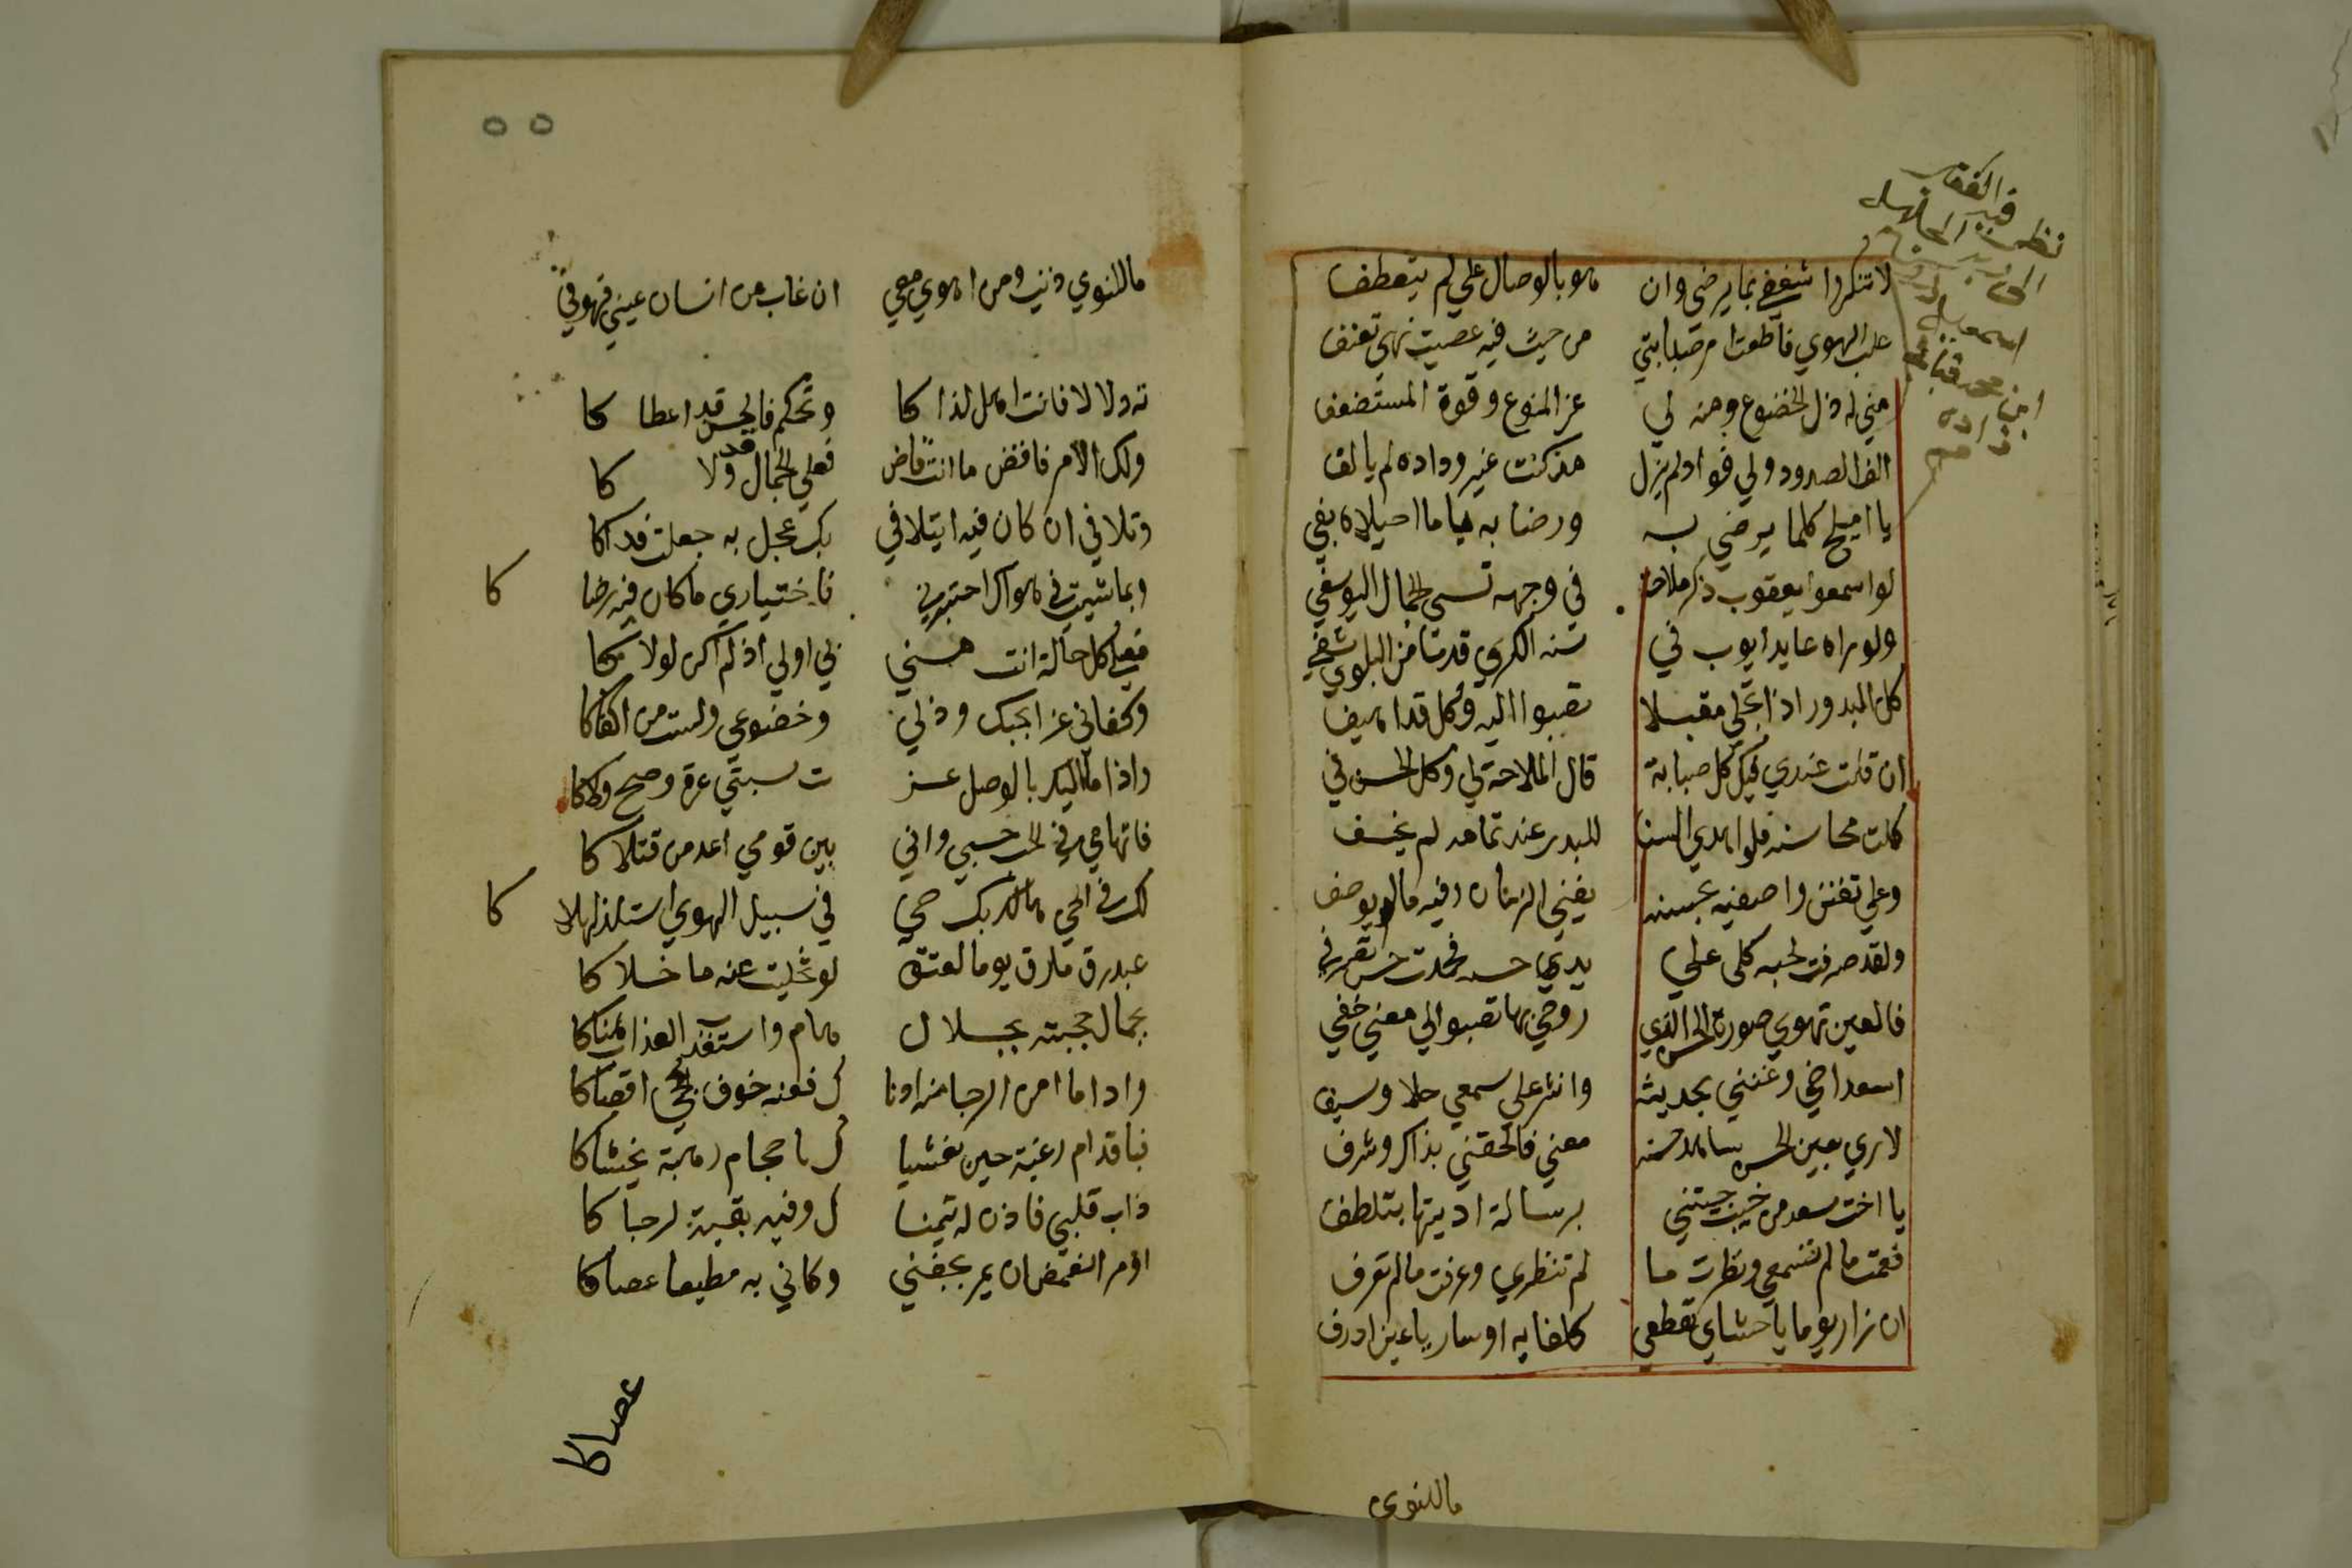 لا تنكروا شغفي بما يرضى وان هو بالوصال علي لم يتعطف
غلب الهوي فأطعت امر صبابتي من حيث فيه عصيت نهي معنف
مني له ذل الخضوع ومنه لي عز المنوع وقوة المستضعف
الف الصدود ولي فواد لم يزل مذ كنت غير وداده لم يالف
يا اميلح كلما يرضي به ورضا به يا ما احيلاه بفي
لو اسمعوا يعقوب ذكر ملاحة في وجهه نسي الجمال اليوسفي
ولو راه عايدا ايوب في سنة الكري قدما من البلوي شفي
كل البدور اذا تجلي مقبلا تصبوا اليه وكل قد اهيف
ان قلت عندي فيك كل صبابة قال الملاحة لي وكل الحسن في
كملت محاسنه فلو اهدي السنا للبدر عند تمامه لم يخسف
وعلي تفنن واصفيه بحسنه يفني الزمان وفيه ما لم يوصف
ولقد صرفت لحبه كلي علي يدي حسنه فحمدت حسن تصرفي
فالعين تهوي صورة الحسن الذي روحي بها تصبوا الي معني خفي
اسعد اخي وغنني بحديثه وانثر علي سمعي حلاه وشنف
لاري بعين الحسن شاهد حسنه معني فالحقني بذاك وشرف
يا اخت سعد من حبيب جيتني برسالة اديتها بتلطف
فسمعت ما لم تسمعي ونظرت ما لم تنظري وعرفت ما لم تعرف
ان زار يوما يا حشاي تقطعي كلفا به او سار يا عين اذرف
ماللنوي
٥٥
ماللنوي ذنب ومن اهوي معي ان غاب من انسان عيني فهو في
ته دلالا فانت اهل لذا كا وتحكم فالحسن قد اعطا كا
ولك الامر فاقض ما انت قاض فعلي الجمال قد ولا كا
وتلافي ان كان فيه ايتلافي بك عجل به جعلت فداكا
وبما شيت في هواك اختبرني فاختياري ما كان فيه رضا كا
فعلي كل حالة انت مني بي اولي اذ لم اكن لولا كا
وكفاني عزا بحبك وذلي وخضوعي ولست من اكفاكا
واذا ما اليك بالوصل عز ت نسبتي عزة وصح ولاكا
فاتهامي في الحب حسبي واني بين قومي اعد من قتلا كا
لك في الحي هالك بك حي في سبيل الهوي استلذ الهلا كا
عبد رق ما رق يوما لعتق لو تخليت عنه ما خلا كا
بجمال حجبته بجلال هام واستعذب العذاب هناكا
واذا ما امن الرجا منه ادنا ك فعنه خوف الحجي اقصاكا
فباقدام رغبة حين يغشا ك باحجام رهبة يخشاكا
ذاب قلبي فاذن له يتمنا ك وفيه بقية لرجا كا
او مر الغمض ان يمر بجفني وكاني به مطيعا عصاكا
عصاكا